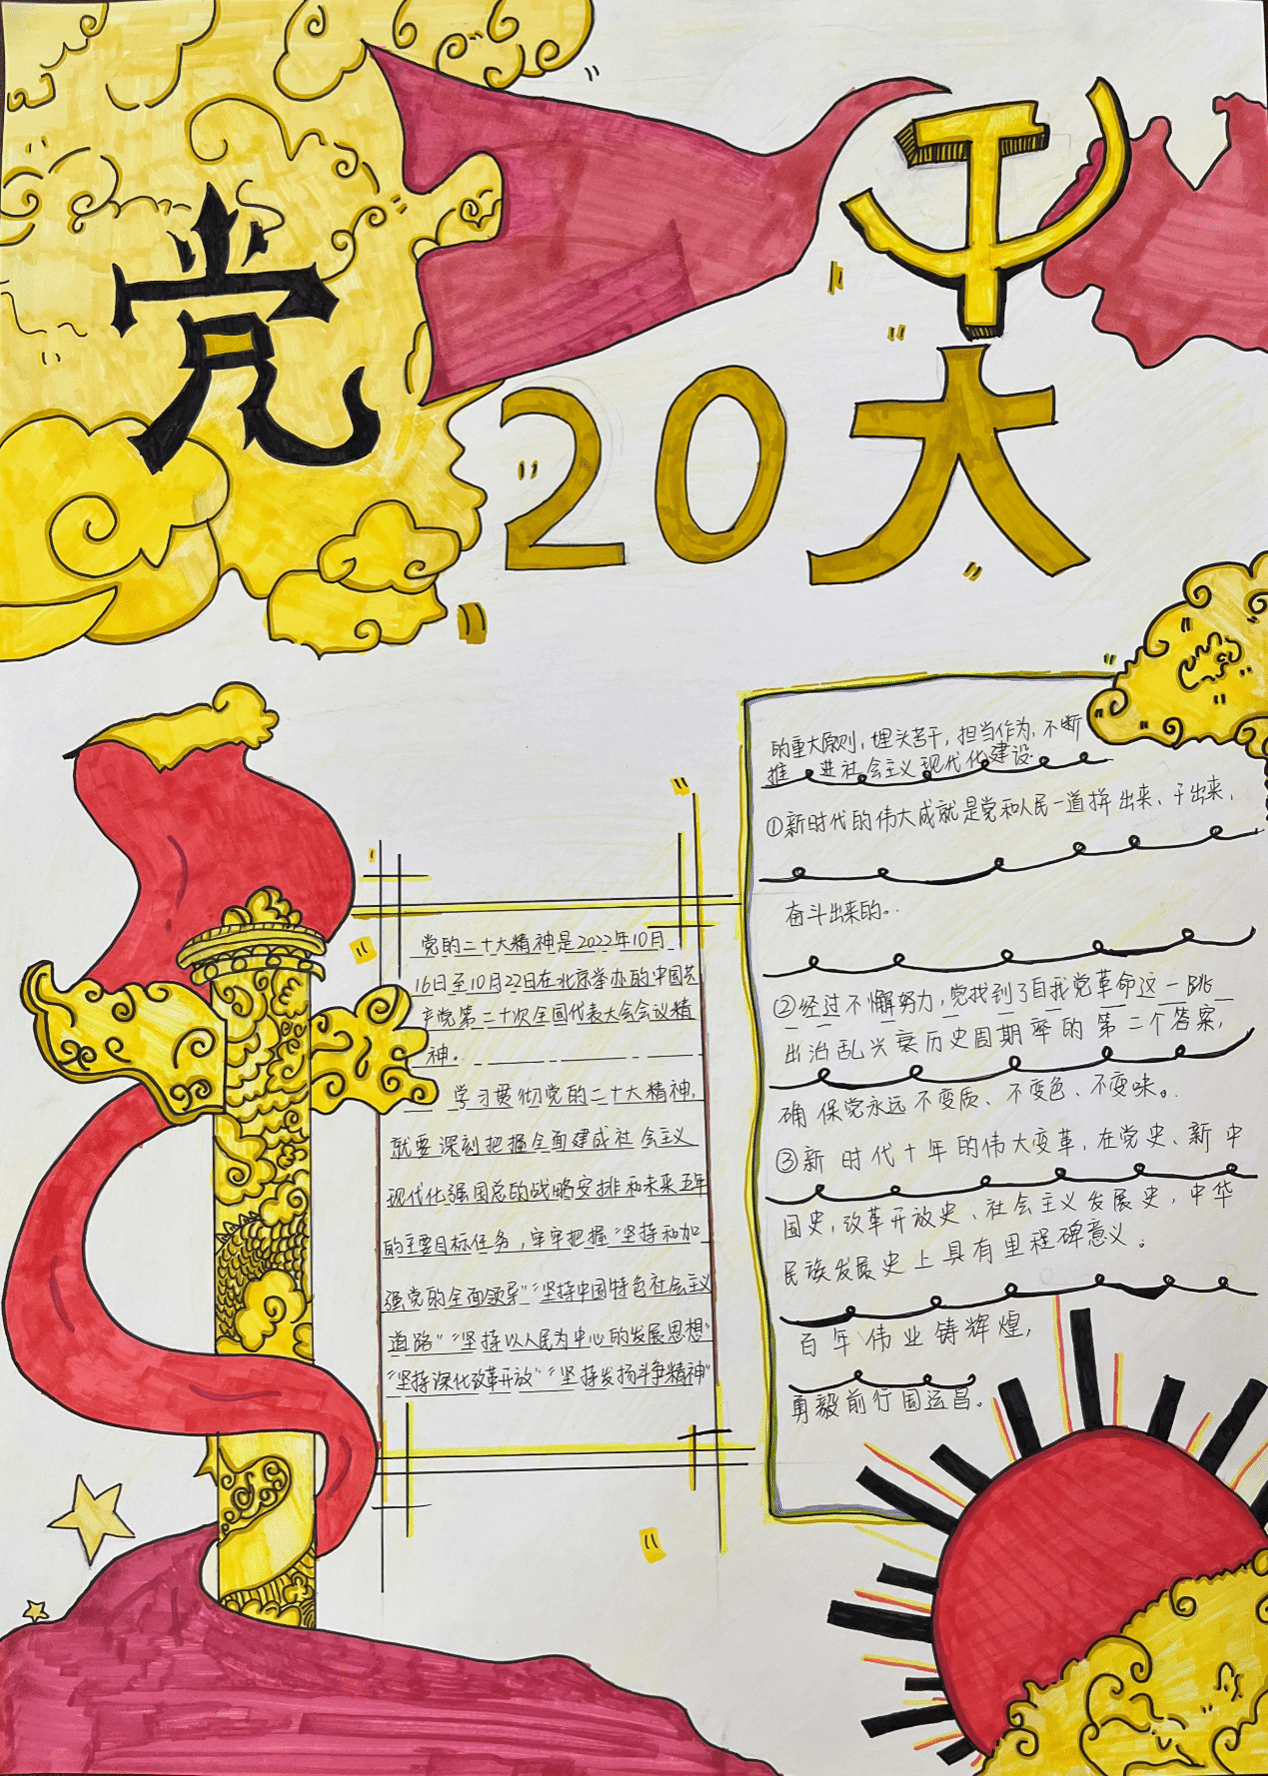 党
20大
党的二十大精神是2022年10月
16日至10月22日在北京举办的中国共
产党第二十次全国代表大会会议精
神。
学习贯彻党的二十大精神,
就要深刻把握全面建成社会主义
现代化强国总的战略安排和未来五年
的主要目标任务,牢牢把握“坚持和加
强党的全面领导”“坚持中国特色社会主义
道路”“坚持以人民为中心的发展思想”
“坚持深化改革开放”“坚持发扬斗争精神”
的重大原则,埋头苦干,担当作为,不断
推进社会主义现代化建设.
①新时代的伟大成就是党和人民一道拼出来、干出来、
奋斗出来的..
②经过不懈努力,党找到了自我党革命这一跳
出治乱兴衰历史周期率的第二个答案,
确保党永远不变质、不变色、不变味。
③新时代十年的伟大变革,在党史、新中
国史,改革开放史、社会主义发展史,中华
民族发展史上具有里程碑意义。
百年伟业铸辉煌,
勇毅前行国运昌。